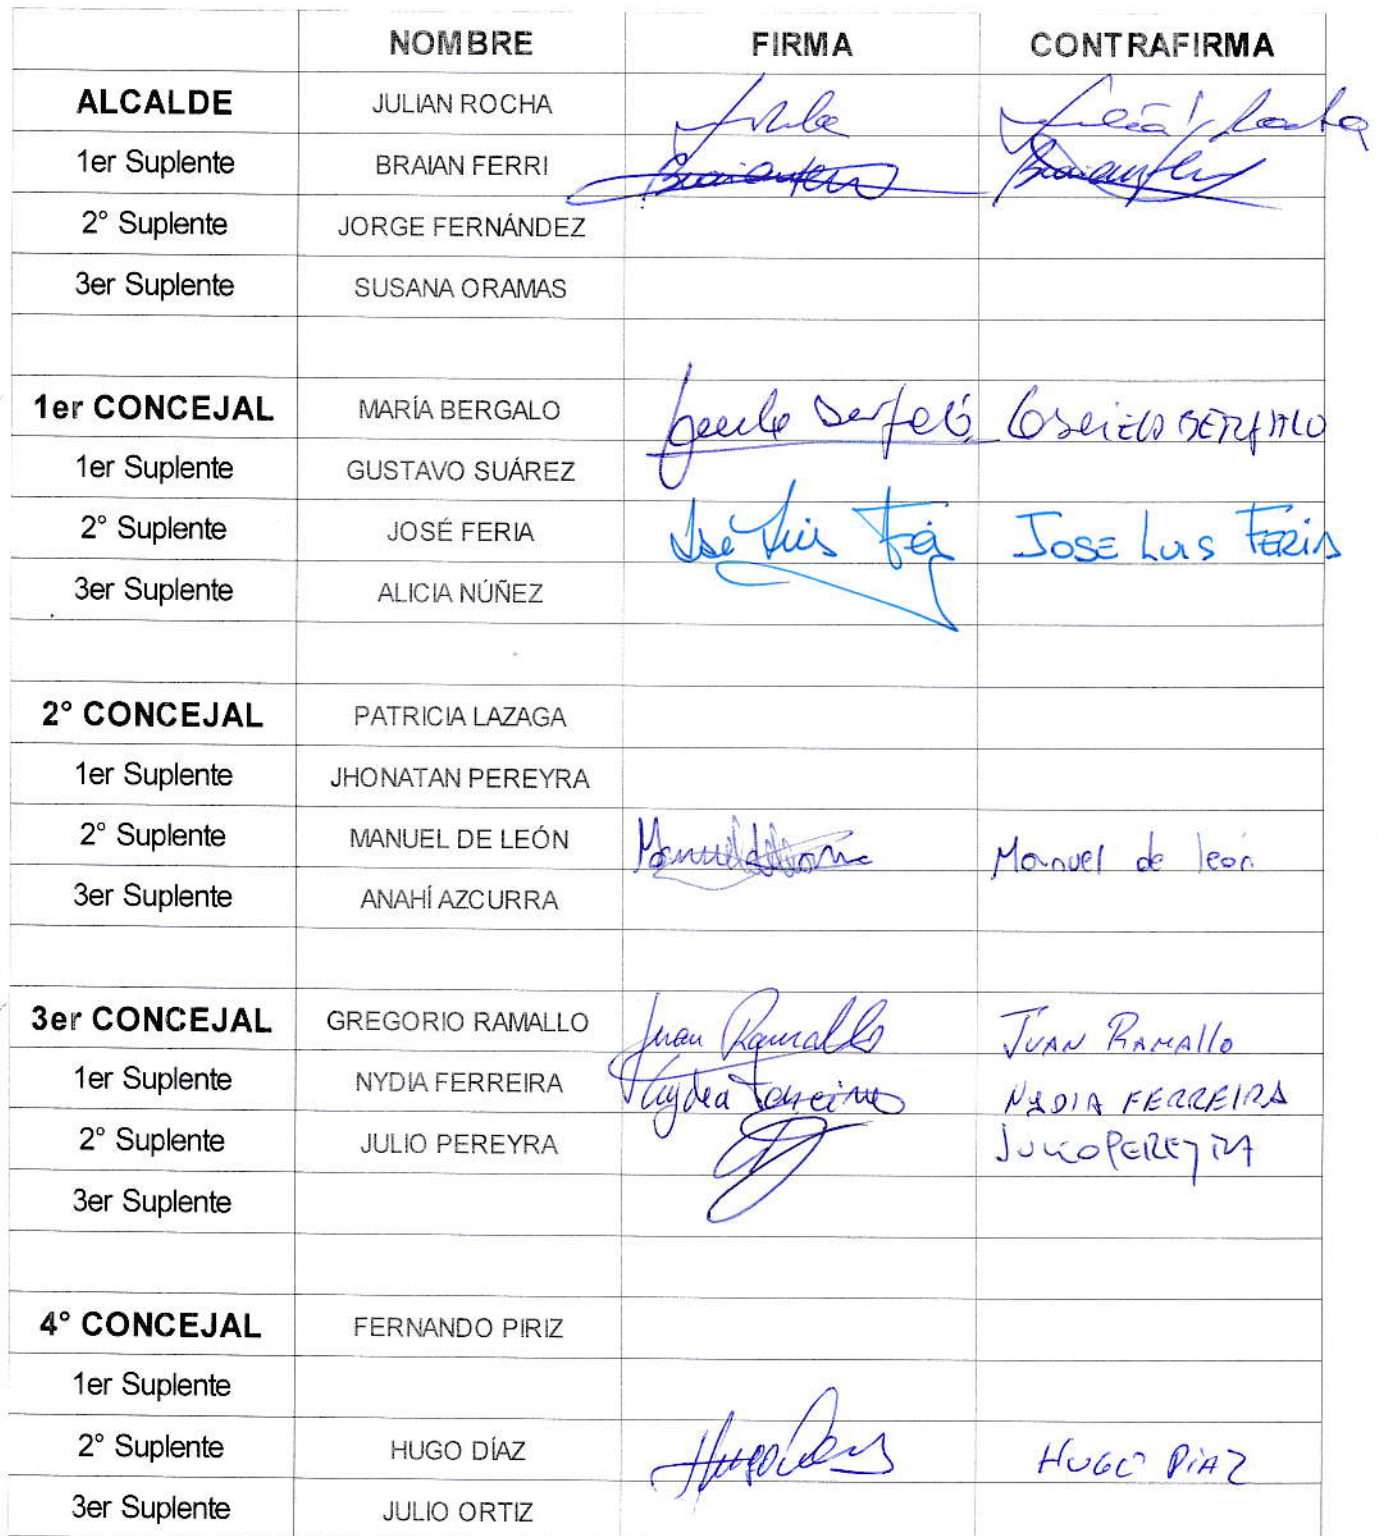 NOMBRE FIRMA CONTRAFIRMA
ALCALDE JULIAN ROCHA Julián Rocha
1er Suplente BRAIAN FERRI Braian Ferri Braian Ferri
2° Suplente JORGE FERNÁNDEZ
3er Suplente SUSANA ORAMAS
1er CONCEJAL MARÍA BERGALO BERGALO
1er Suplente GUSTAVO SUÁREZ
2° Suplente JOSÉ FERIA José Luis JOSE LUIS FERIA
3er Suplente ALICIA NÚÑEZ
2° CONCEJAL PATRICIA LAZAGA
1er Suplente JHONATAN PEREYRA
2° Suplente MANUEL DE LEÓN Manuel Manuel de león
3er Suplente ANAHÍ AZCURRA
3er CONCEJAL GREGORIO RAMALLO Juan Ramallo JUAN RAMALLO
1er Suplente NYDIA FERREIRA Nydia Ferreira NYDIA FERREIRA
2° Suplente JULIO PEREYRA JULIO PEREYRA
3er Suplente
4° CONCEJAL FERNANDO PIRIZ
1er Suplente
2° Suplente HUGO DÍAZ Hugo HUGO DIAZ
3er Suplente JULIO ORTIZ